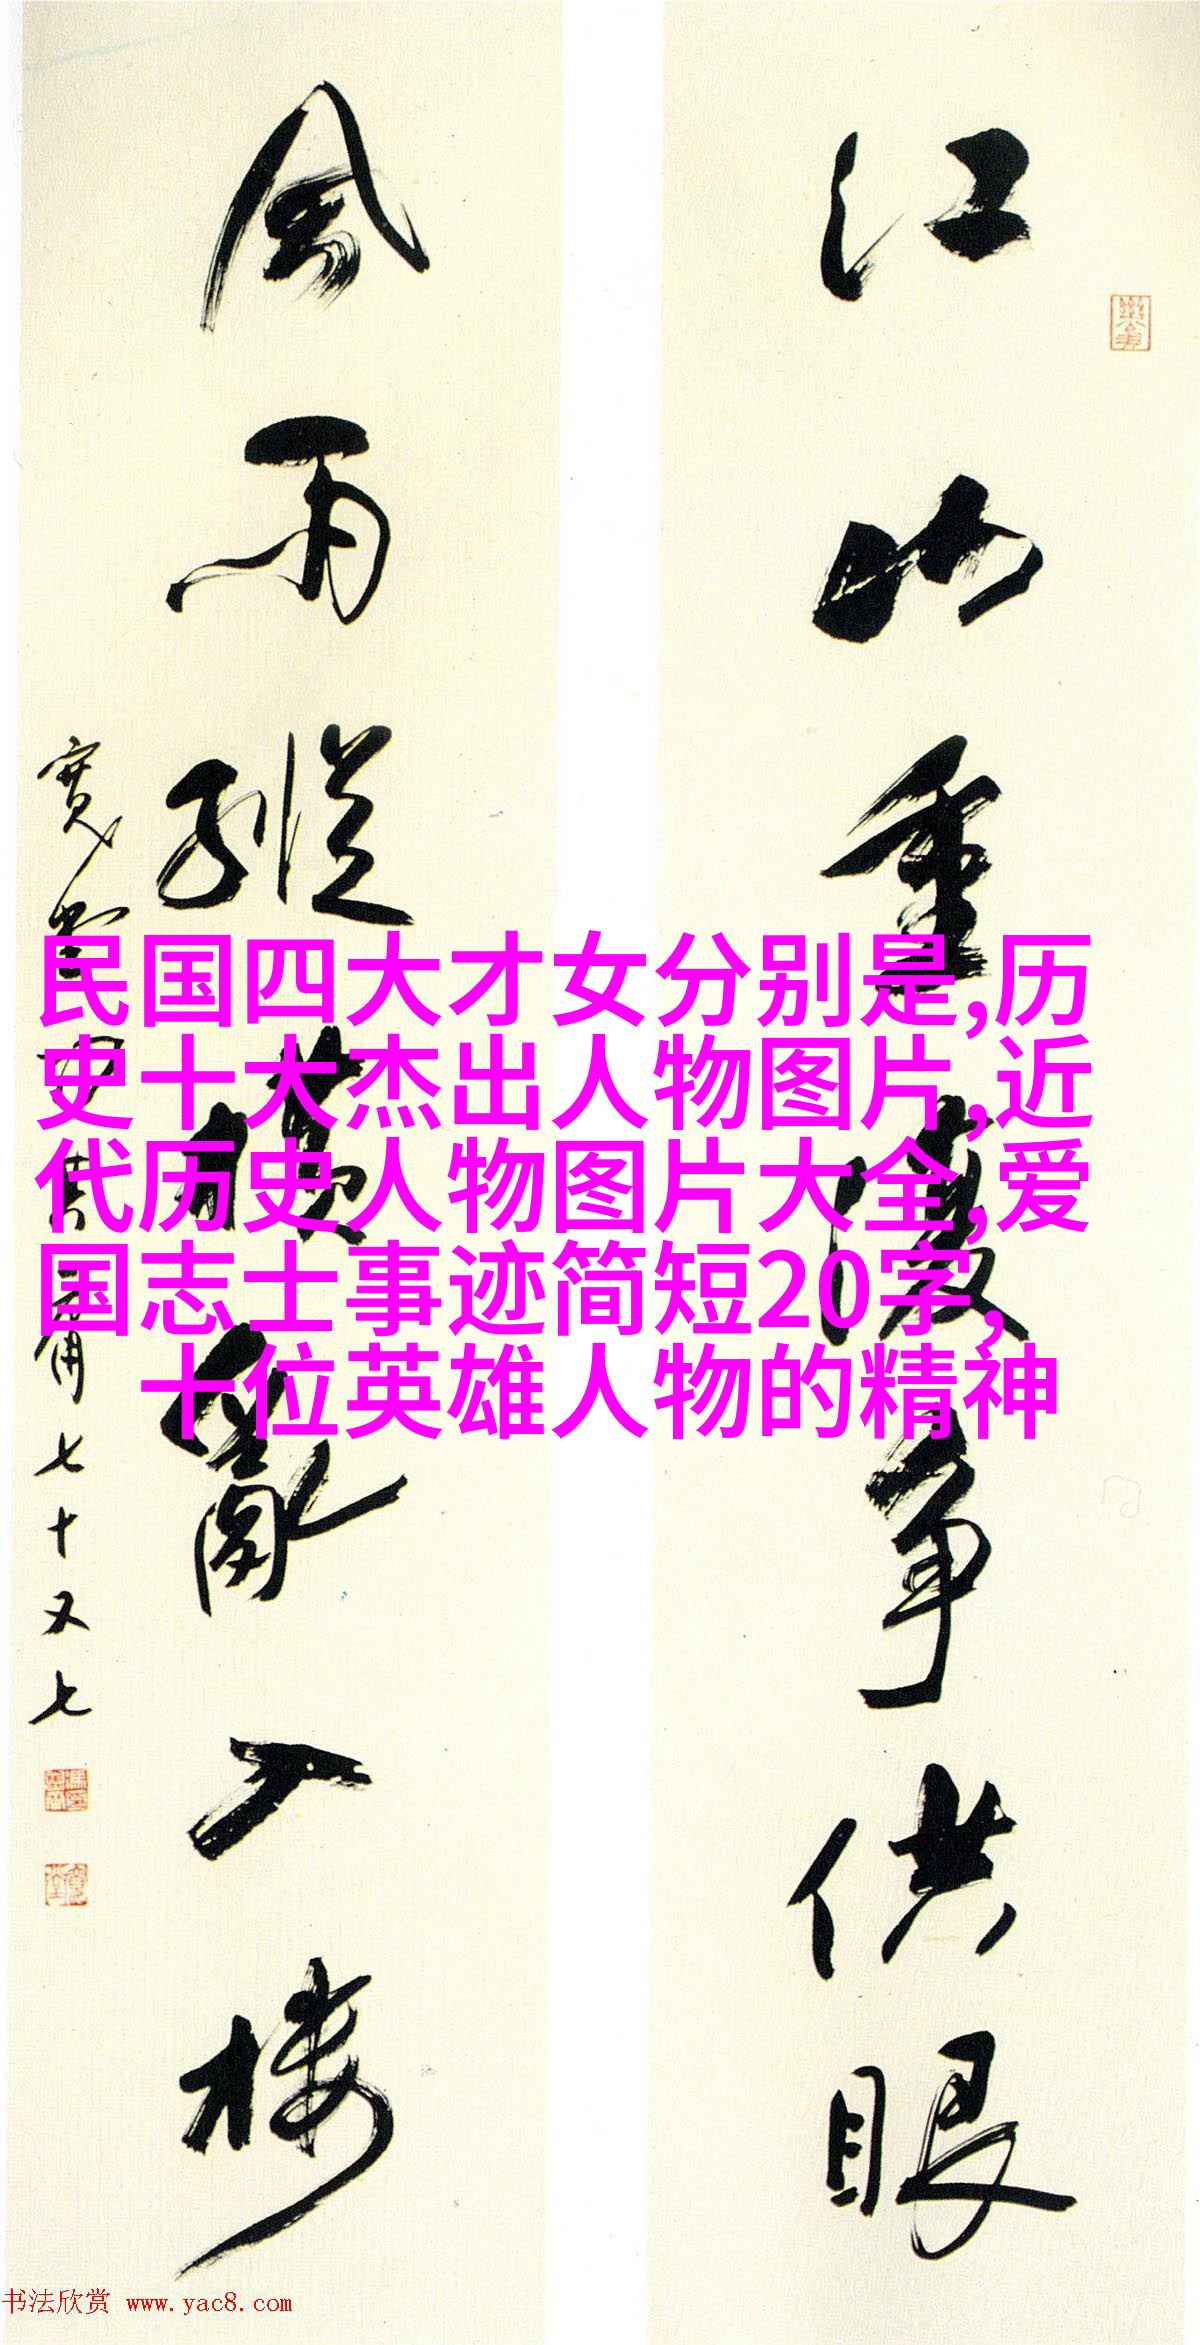 民国四大才女分别是,历
史十大杰出人物图片,近
代历史人物图片大全,爱
国志士事迹简短20字,
十位英雄人物的精神
江山重複争供眼
風雨縱横亂入樓
七十又七
书法欣赏 www.yac8.com